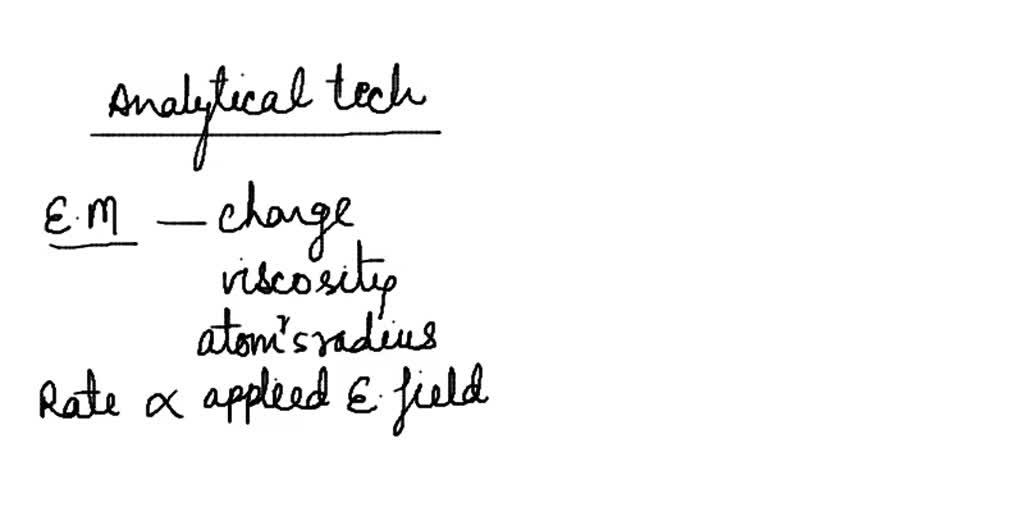 Analytical tech
E.M — charge
viscosity
atom's radius
Rate ∝ applied E. field